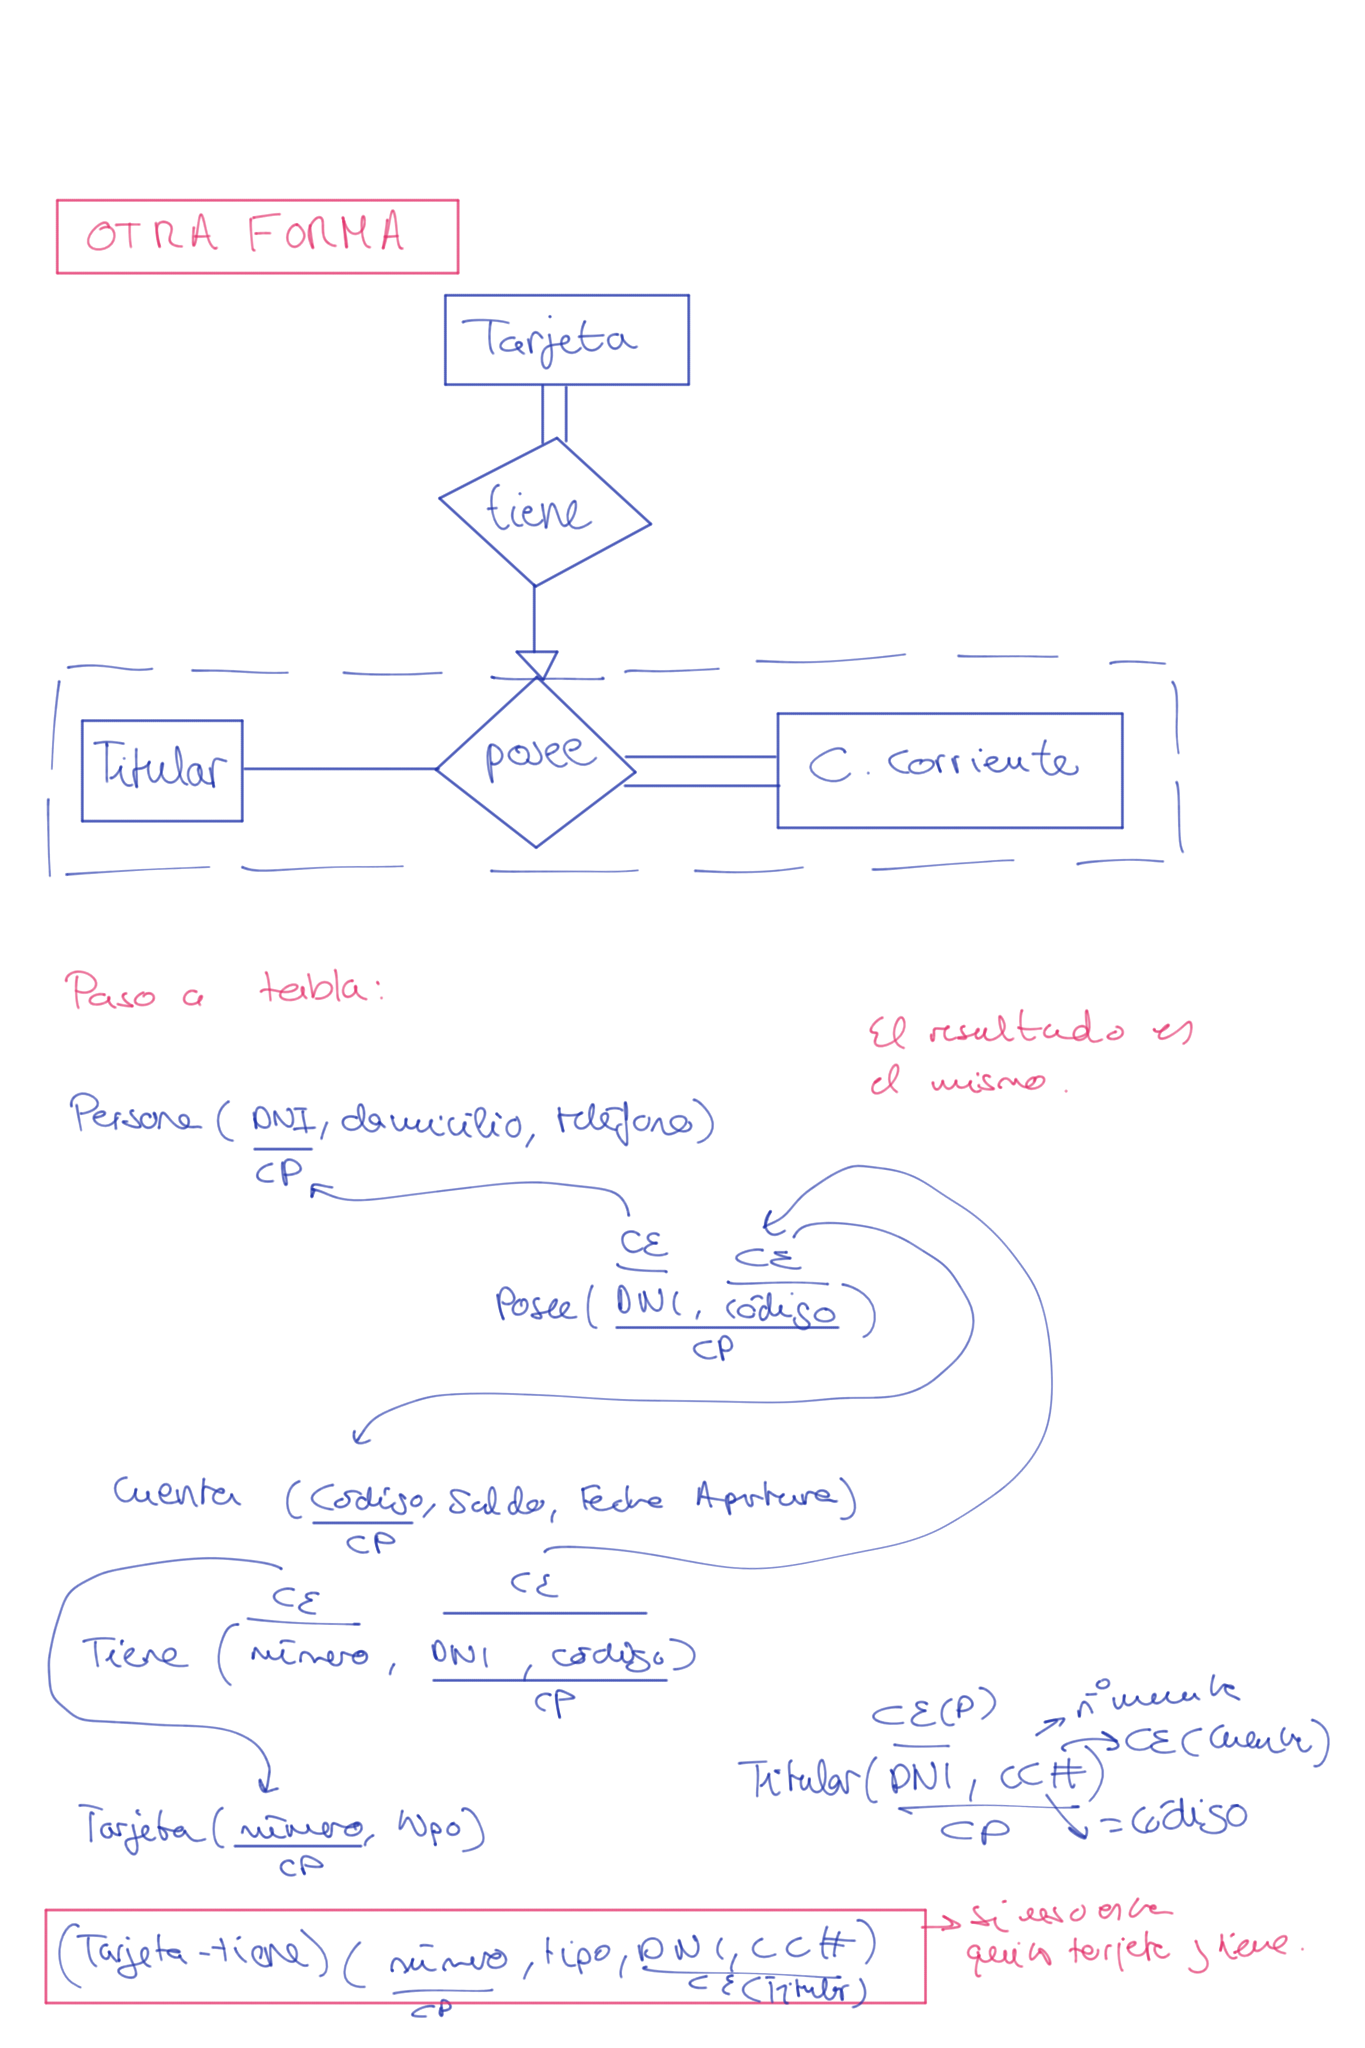 OTRA FORMA
Tarjeta
tiene
Titular
posee
C. Corriente
Paso a tabla:
El resultado es
el mismo.
Persona ( DNI, domicilio, teléfono)
CP
CE CE
Posee ( DNI, código )
CP
Cuenta (Código, Saldo, Fecha Apertura)
CP
CE CE
Tiene ( número, DNI, código)
CP
CE(P) nº cuenta
CE (Cuenta)
Titular( DNI, CC#)
CP = Código
Tarjeta (número, tipo)
CP
(Tarjeta-tiene) ( número, tipo, DNI, CC#)
CP CE(Titular)
Si
tarjeta y tiene.